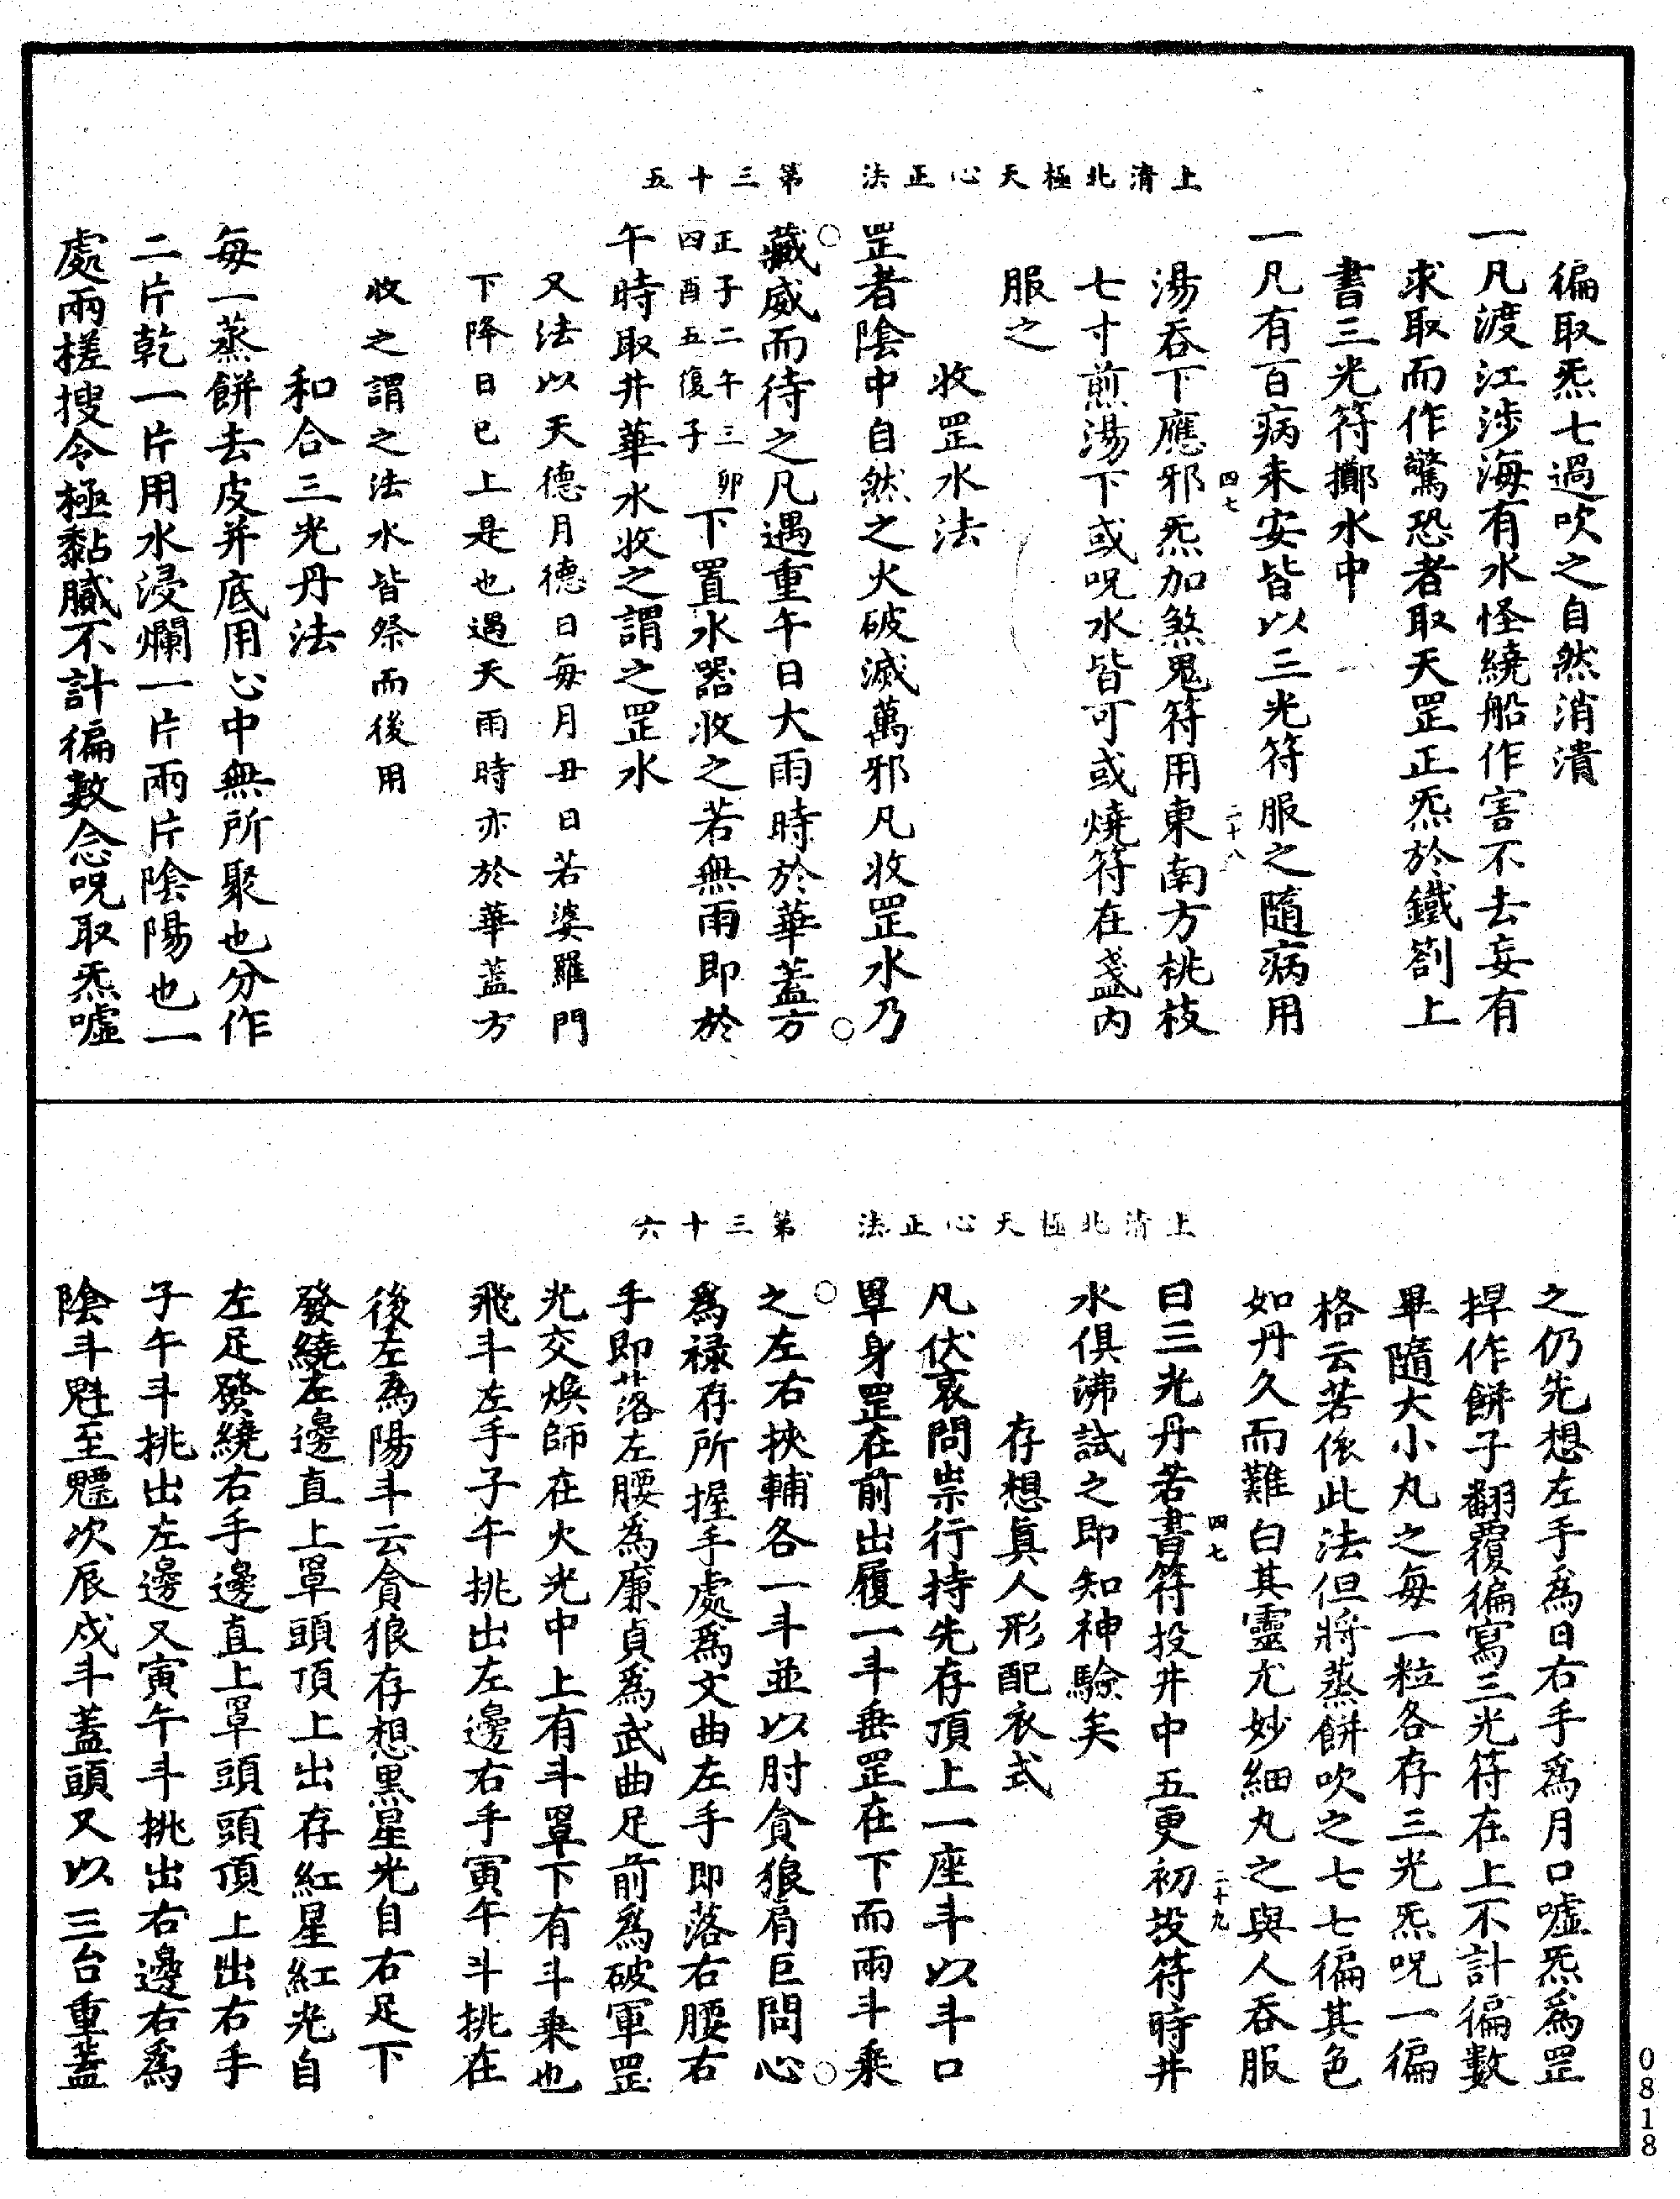 上清北極天心正法　第三十五
徧取炁七過吹之自然消潰
一凡渡江涉海有水怪繞船作害不去妄有
求取而作驚恐者取天罡正炁於鐵劄上
書三光符擲水中
一凡有百病未安皆以三光符服之隨病用
四七　二十八
湯吞下應邪炁加煞鬼符用東南方桃枝
七寸煎湯下或呪水皆可或燒符在盞內
服之
收罡水法
罡者陰中自然之火破滅萬邪凡收罡水乃
藏威而待之凡遇重午日大雨時於華蓋方
正子二午三卯四酉五復子下置水器收之若無雨即於
午時取井華水收之謂之罡水
又法以天德月德日每月丑日若婆羅門
下降日已上是也遇天雨時亦於華蓋方
收之謂之法水皆祭而後用
和合三光丹法
每一蒸餅去皮并底用心中無所聚也分作
二片乾一片用水浸爛一片兩片陰陽也一
處兩搓搜令極黏膩不計徧數念呪取炁噓
上清北極天心正法　第三十六
之仍先想左手為日右手為月口噓炁為罡
捍作餅子翻覆徧寫三光符在上不計徧數
畢隨大小丸之每一粒各存三光炁呪一徧
格云若依此法但將蒸餅吹之七七徧其色
如丹久而難白其靈尤妙細丸之與人吞服
四七　二十九
曰三光丹若書符投井中五更初投符時井
水俱沸試之即知神驗矣
存想真人形配衣式
凡伏裏問祟行持先存頂上一座斗以斗口
單身罡在前出履一斗垂罡在下而兩斗乘
之左右挾輔各一斗並以肘貪狼肩巨問心
為祿存所握手處為文曲左手即落右腰右
手即落左腰為廉貞為武曲足前為破軍罡
光交煥師在火光中上有斗罩下有斗乘也
飛斗左手子午挑出左邊右手寅午斗挑在
後左為陽斗云貪狼存想黑星光自右足下
發繞左邊直上罩頭頂上出存紅星紅光自
左足發繞右手邊直上罩頭頭頂上出右手
子午斗挑出左邊又寅午斗挑出右邊右為
陰斗魁至魒次辰戌斗蓋頭又以三台重蓋
0818